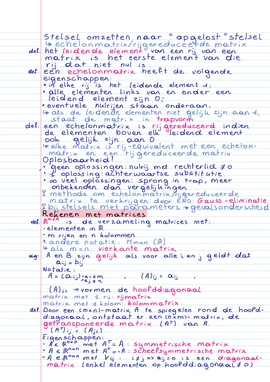 Stelsel omzetten naar "opgelost" stelsel
↳ echelonmatrix/rijgereduceerde matrix
def. het leidende element van een rij van een
matrix is het eerste element van die
rij dat niet nul is
def. een echelonmatrix heeft de volgende
eigenschappen:
• in elke rij is het leidende element 1;
• alle elementen links van en onder een
leidend element zijn 0;
• eventuele nulrijen staan onderaan.
↳ als de leidende elementen niet gelijk zijn aan 1,
staat de matrix in trapvorm
def. een echelonmatrix is rijgereduceerd indien
de elementen boven elk leidend element
ook gelijk zijn aan 0
↳ elke matrix is rij-equivalent met een echelon-
matrix en een rijgereduceerde matrix
Oplosbaarheid?
• geen oplossingen: nulrij met rechterlid ≠ 0
• 1 oplossing: achterwaartse substitutie
• ∞ veel oplossingen: sprong in trap, meer
onbekenden dan vergelijkingen
! methodes om echelonmatrix/rijgereduceerde
matrix te verkrijgen door ERO: Gauss-eliminatie
! bij stelsels met parameters → gevalsonderscheid
Rekenen met matrices
def. ℝᵐˣⁿ is de verzameling matrices met:
- elementen in ℝ
- m rijen en n kolommen
↳ andere notatie: Mmxn (ℝ)
↳ als m=n: vierkante matrix
eig. A en B zijn gelijk als voor alle i en j geldt dat
aij = bij
Notatie:
A = (aij) 1≤i≤m 1≤j≤n (A)ij = aij
(A)ii → vormen de hoofddiagonaal
matrix met 1 rij: rijmatrix
matrix met 1 kolom: kolommatrix
def. Door een (m×n)-matrix A te spiegelen rond de hoofd-
diagonaal, ontstaat er een (n×m)-matrix, de
getransponeerde matrix (Aᵀ) van A.
(Aᵀ)ij = (A)ji
Eigenschappen:
- A ∈ ℝⁿˣⁿ met Aᵀ = A : symmetrische matrix
- A ∈ ℝⁿˣⁿ met Aᵀ = -A : scheefsymmetrische matrix
- A ∈ ℝⁿˣⁿ met ∀ij : i≠j ⇒ aij = 0 is een diagonaal-
matrix (enkel elementen op hoofddiagonaal ≠ 0)